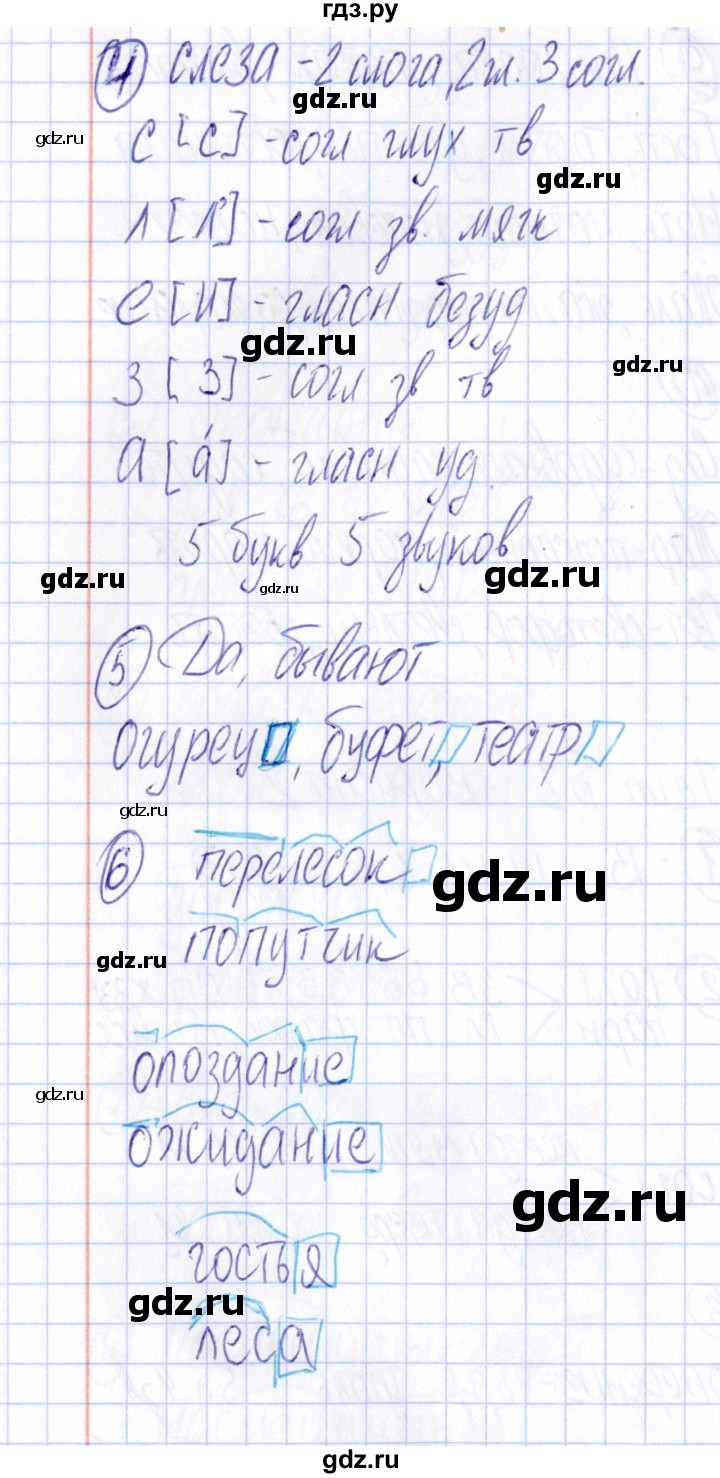 гдз.ру
4 слеза - 2 слога, 2 гл. 3 согл.
gdz.ru
gdz.ru
с [с] - согл глух тв
gdz.ru
л [л'] - согл зв. мягк
е [и] - гласн безуд
gdz.ru
gdz.ru
з [з] - согл зв тв
а [а́] - гласн уд.
5 букв 5 звуков
gdz.ru
gdz.ru
gdz.ru
5 Да, бывают
огурец, буфет, театр
gdz.ru
6 перелесок
gdz.ru
попутчик
gdz.ru
опоздание
gdz.ru
ожидание
gdz.ru
гостья
gdz.ru
леса
gdz.ru